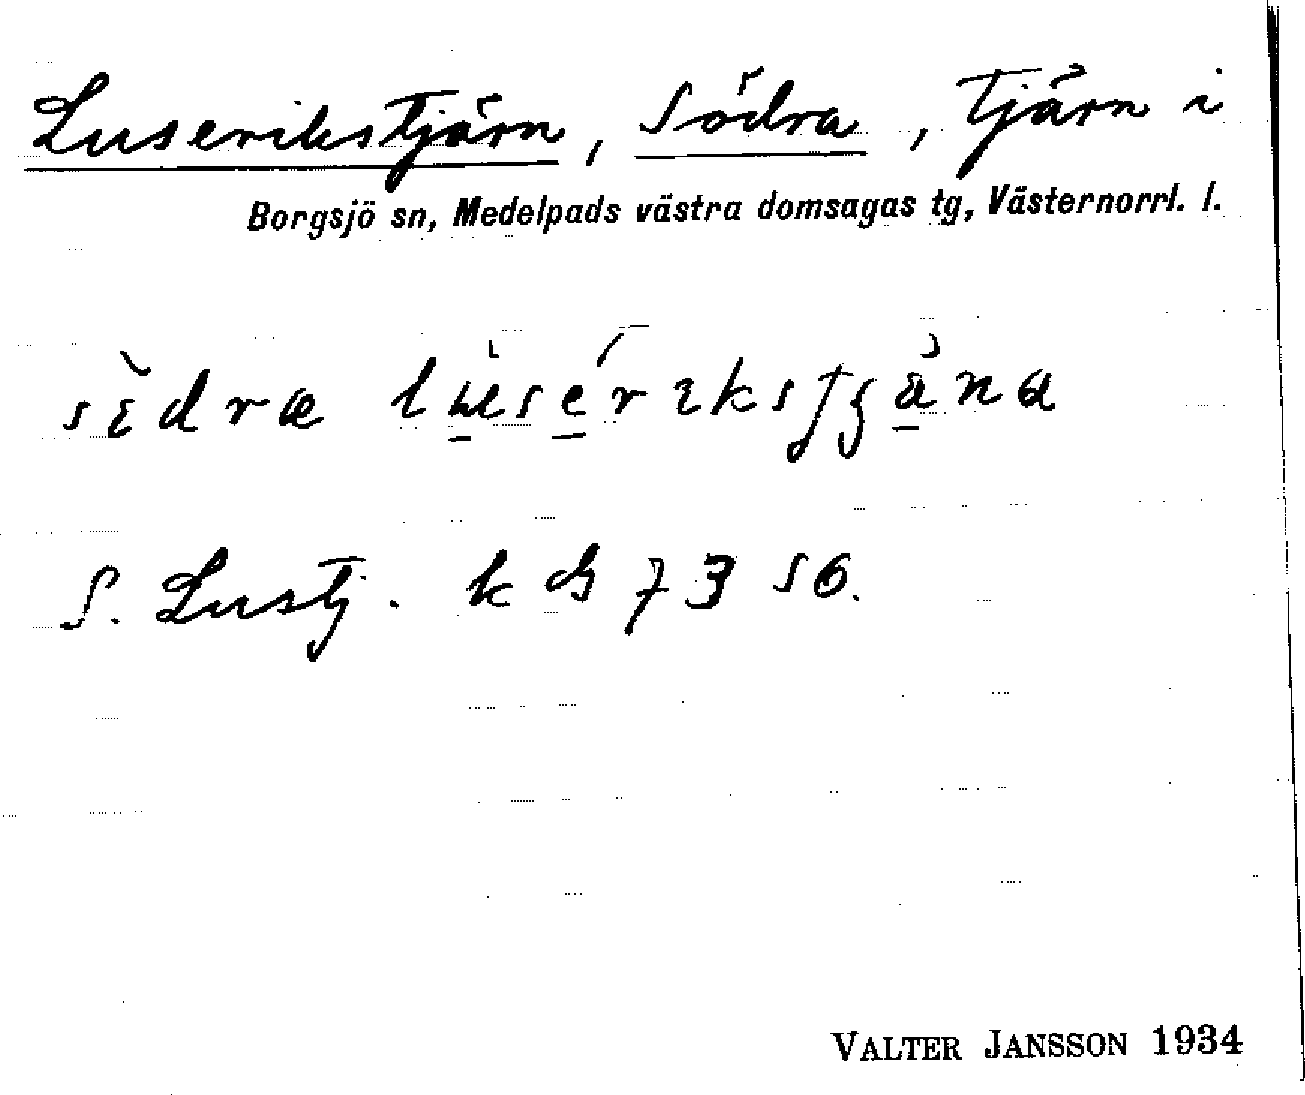 Luserikstjärn, Södra, tjärn i
Borgsjö sn, Medelpads västra domsagas tg, Västernorrl. l.
S. Lustj. k ch 73 S6.
VALTER JANSSON 1934